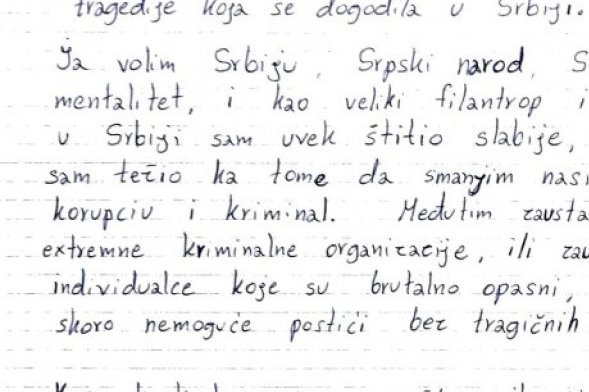 tragedije koja se dogodila u Srbiji.
Ja volim Srbiju, Srpski narod, S
mentalitet, i kao veliki filantrop i
u Srbiji sam uvek štitio slabije,
sam težio ka tome da smanjim nasi
korupciu i kriminal. Međutim zausta
extremne kriminalne organizacije, ili zau
individualce koje su brutalno opasni,
skoro nemoguće postići bez tragičnih